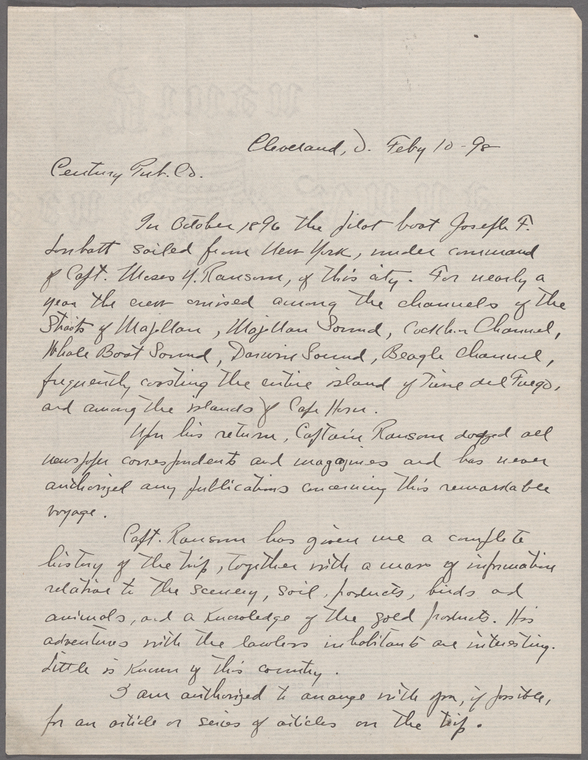 Cleveland, O. Feby 10-98
Century Pub. Co.
In October 1896 the pilot boat Joseph F.
Loubatt sailed from New York, under command
of Capt. Moses Y. Ransom, of this city. For nearly a
year the crew cruised among the channels of the
Straits of Majellan, Majellan Sound, Cockburn Channel,
Whale Boat Sound, Darwin Sound, Beagle Channel,
frequently coasting the entire island of Tierre del Fuego,
and among the islands of Cape Horn.
Upon his return, Captain Ransom dodged all
newspaper correspondents and magazines and has never
authorized any publications concerning this remarkable
voyage.
Capt. Ransom has given me a complete
history of the trip, together with a mass of information
relative to the scenery, soil, products, birds and
animals, and a knowledge of the gold products. His
adventures with the lawless inhabitants are interesting.
Little is known of this country.
I am authorized to arrange with you, if possible,
for an article or series of articles on the trip.